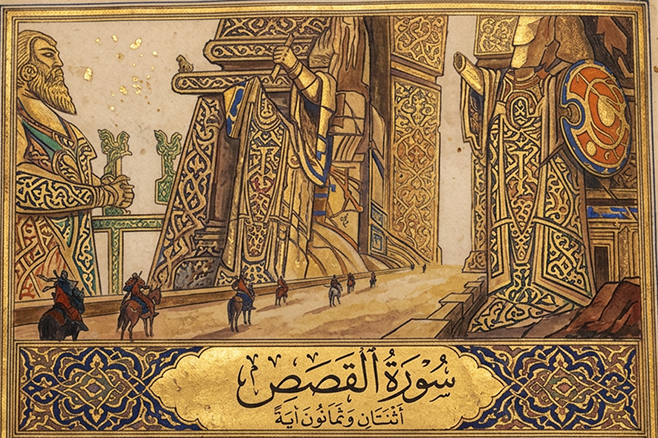 سُورَةُ ٱلْقَصَصِ
أَثْنَتَان وَثَمَانُونَ اَيَةً